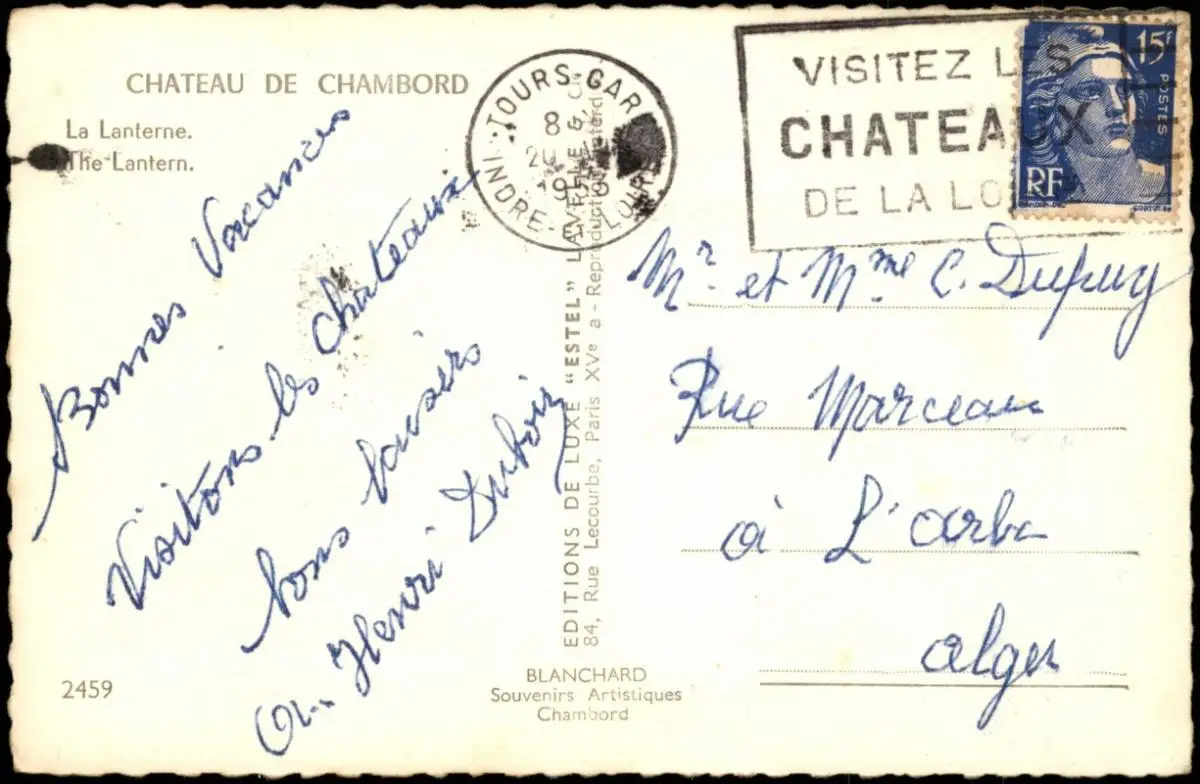 CHATEAU DE CHAMBORD
La Lanterne.
The Lantern.
Bonnes Vacances
Visitons les chateaux
bons baisers
Henri Duboiz
2459
EDITIONS DE LUXE "ESTEL" LAVELLE &
84, Rue Lecourbe, Paris XVe a - Reproduction
BLANCHARD
Souvenirs Artistiques
Chambord
TOURS-GARE
8
INDRE-ET-LOIRE
VISITEZ LES
CHATEAUX
DE LA LOIRE
15F
POSTES
RF
Mr. et Mme C. Dupuy
Rue Marceau
à L'arba
alger